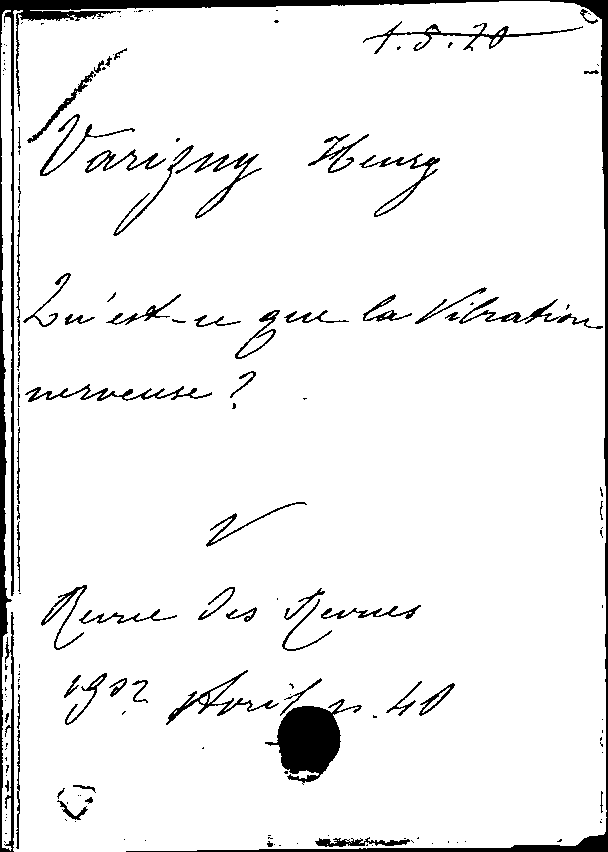 1.5.20
Varizny Henry
Qu'est-ce que la Vibration
nerveuse ?
V
Revue des Revues
Avril n. 40